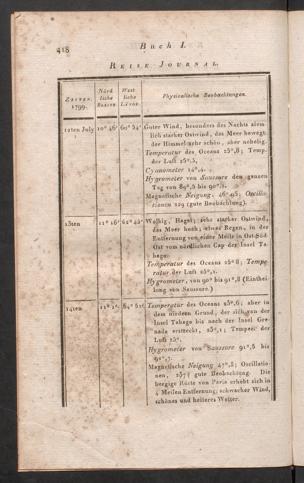 418
Buch I.
Reise Journal.
Zeiten. 1799.
Nördliche Breite.
Westliche Länge.
Physicalische Beobachtungen.
12ten July 10° 46' 60° 54' Guter Wind, besonders des Nachts ziemlich
starker Ostwind, das Meer bewegt,
der Himmel sehr schön, aber nebelig.
Temperatur des Oceans 25°,8; Temp.
der Luft
Cyanometer
Hygrometer von Saussure den ganzen
Tag von bis 90°
Magnetische Neigung, Oscillationen
229 (gute Beobachtung).
13ten 11° 16' 62° 45' Wolkig, Hagel; sehr starker Ostwind,
das Meer hoch; etwas Regen, in der
Entfernung von einer Meile in Ost-Süd-
Ost vom nördlichen Cap der Insel Tabago.
Temperatur des Oceans 25°8; Temperatur
der Luft
Hygrometer, von 90° bis 91°,8 (Eintheilung
von Saussure.)
14ten Temperatur des Oceans 25°,6; aber in
dem niedern Grund, der sich von der
Insel Tabago bis nach der Insel Grenada
erstreckt, Temper. der
Luft 25°.
Hygrometer von Saussure 91°,5 bis
Magnetische Neigung 47°,5; Oscillationen,
237 (gute Beobachtung. Die
bergige Küste von Paria erhebt sich in
4 Meilen Entfernung; schwacher Wind,
schönes und heiteres Wetter.